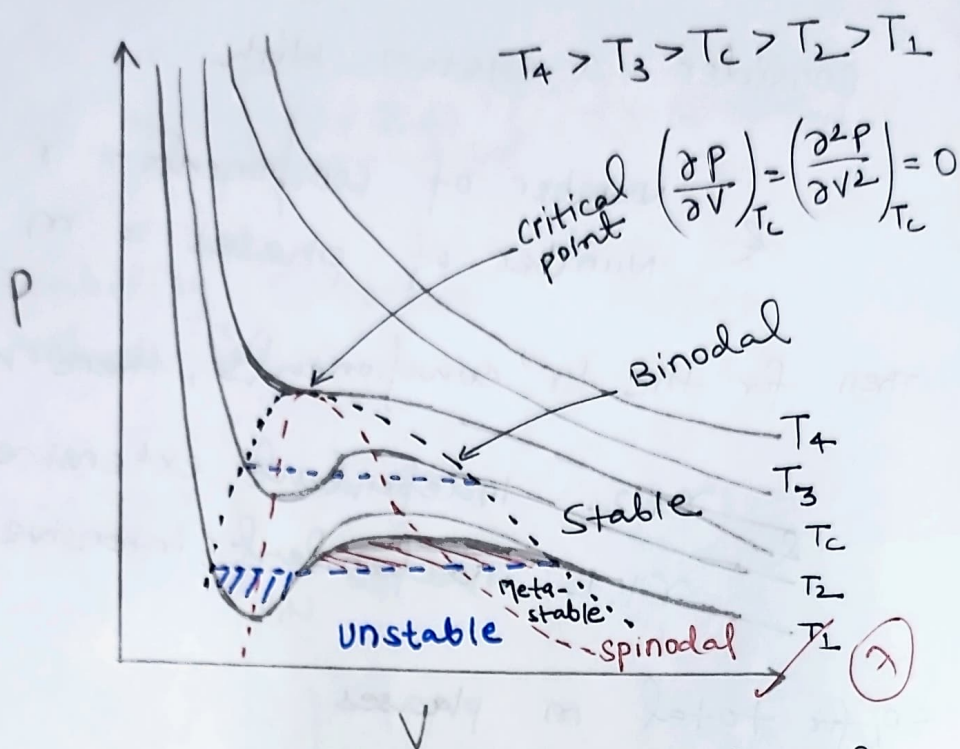 T4 > T3 > Tc > T2 > T1
critical point (∂P/∂V)Tc = (∂²P/∂V²)Tc = 0
P
Binodal
T4
T3
Stable
Tc
T2
Meta-
stable
T1
unstable
spinodal
V